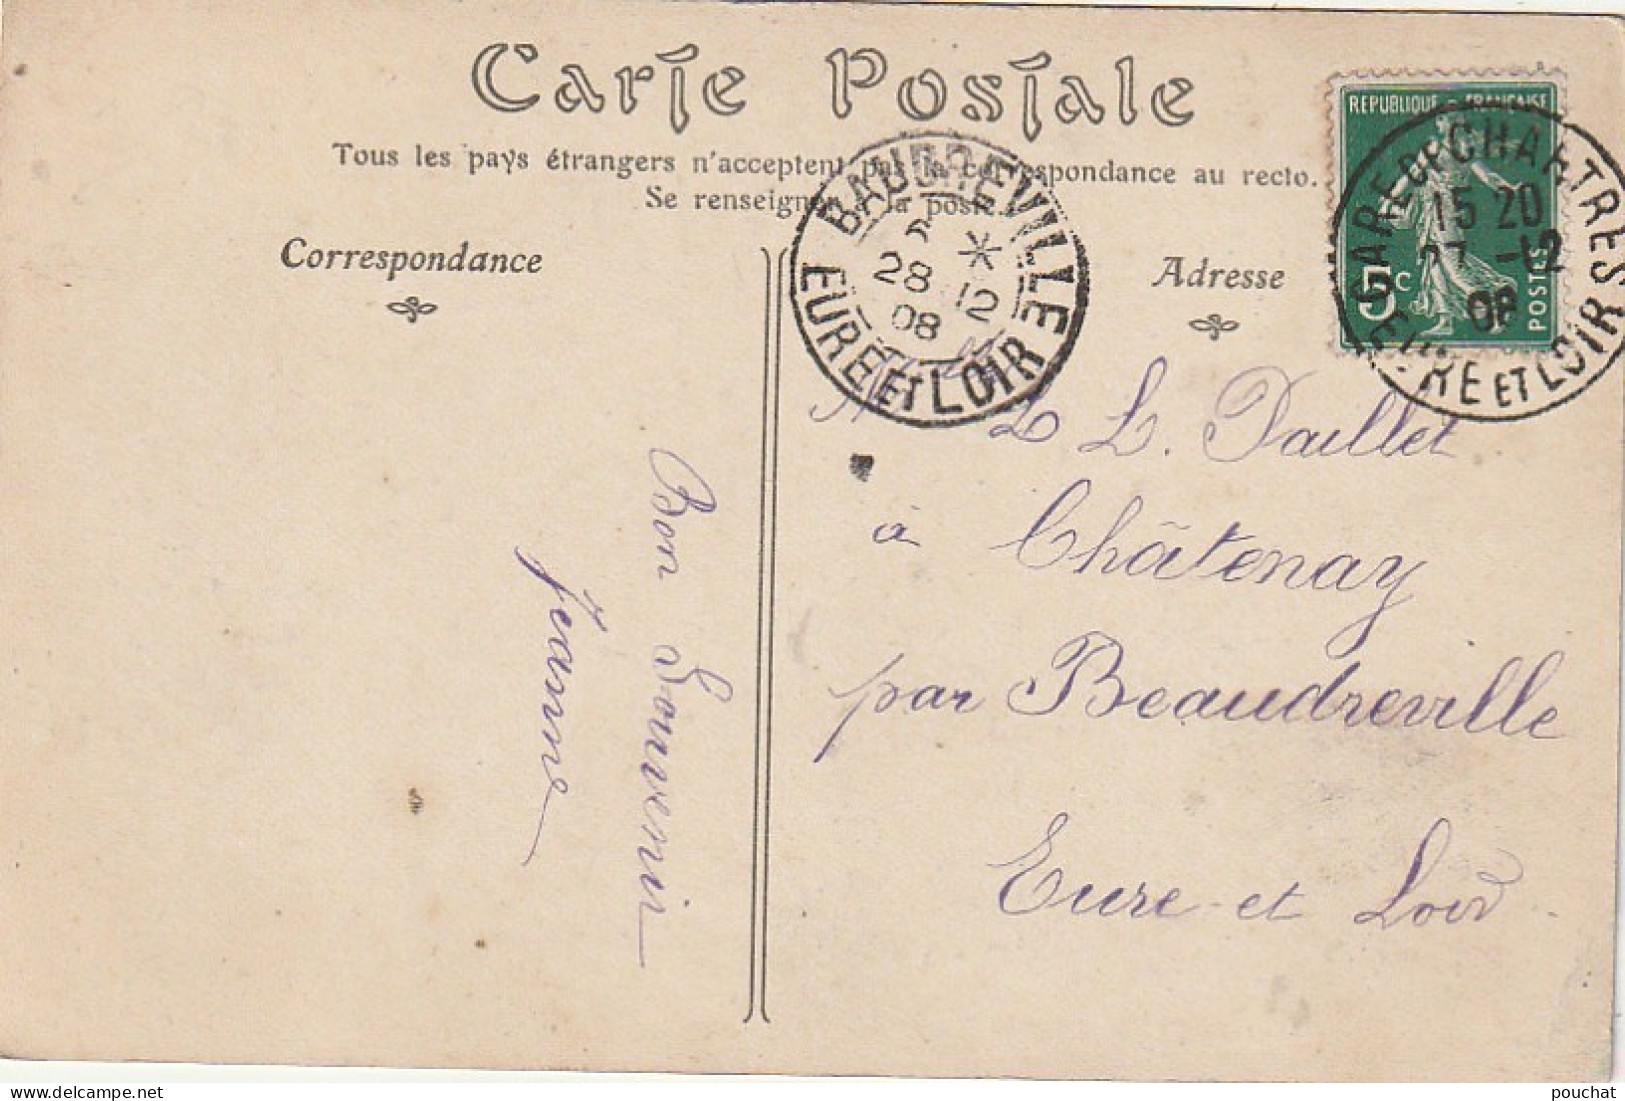 Carte Postale
Tous les pays étrangers n'acceptent pas la correspondance au recto.
Se renseigner à la poste.
Correspondance
Adresse
REPUBLIQUE FRANÇAISE
5c
POSTES
GARE DE CHARTRES
15 20
27 -12
08
EURE ET LOIR
BAUDREVILLE
6 *
28 12
08
EURE ET LOIR
L. Paillet
à Châtenay
par Beaudreville
Eure et Loir
Bon Souvenir
Jeanne
pouchat